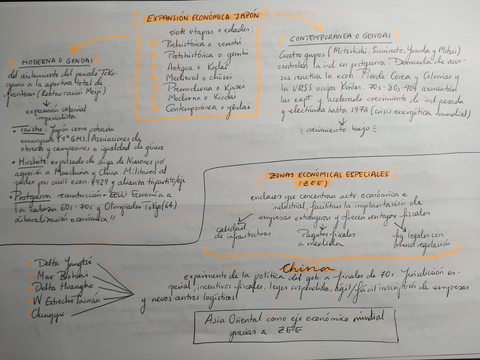 EXPANSIÓN ECONÓMICA JAPÓN
siete etapas o edades:
Prehistórica o senshi
Protohistórica o genshi
Antigua o Kodai
Medieval o chūsei
Premoderna o Kinsei
Moderna o Kindai
Contemporánea o gendai
MODERNA O GENDAI
del aislamiento del periodo Toku-
gawa a la apertura total de
fronteras (Restauración Meiji)
expansión colonial
imperialista
Taisho: Japón como potencia
emergente 1ª GM. Asociaciones de
obreros y campesinos e igualdad de género
expulsado de Liga de Naciones por
agresión a Manchuria y China. Militares al
poder por crisis econ 1929 y alianza tripartito/eje
Postguerra: reconstrucción. EEUU. Economía a
la cabeza 60s-70s y Olimpiadas Tokyo(64)
liberalización económica!!
CONTEMPORÁNEA O GENDAI
Cuatro grupos (Mitsubishi, Sumimoto, Yasuda y Mitsui)
controlan la ind en postguerra. Demanda de
sus reactiva la econ. Pierde Corea y Colonias y
la URSS ocupa Kuriles. 70s-80s-90s aumentan
las exp y acelerado crecimiento de ind pesada
y electrónica hasta 1973 (crisis energética mundial)
crecimiento bajo
ZONAS ECONOMICAS ESPECIALES
(ZEE)
enclaves que concentran activ. económica e
industrial, facilitan la implantación de
empresas extranjeras y ofrecen ventajas fiscales
calidad
de infraestructuras
Paquetes fiscales
a medida
legales con
regulación
China
experimento de la política del gob a finales de 70s. Jurisdicción es-
pecial, incentivos fiscales, leyes suspendidas, ágil/fácil inscripción de empresas
y nuevos centros logísticos!
Delta Yangtsé
Mar Bohai
Delta Huangho
W Estrecho Taiwan
Asia Oriental como eje económico mundial
gracias a ZEE